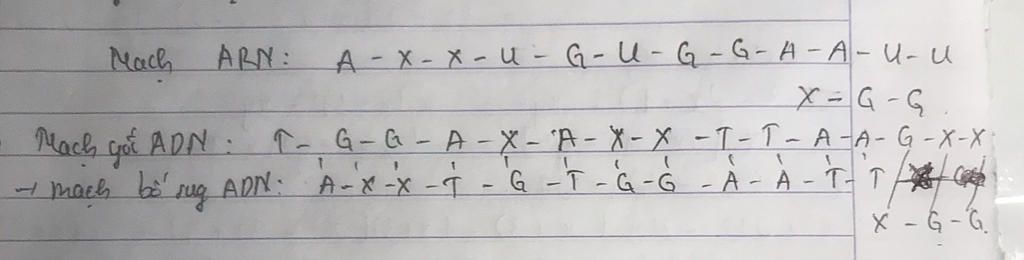 Mạch ARN: A - X - X - U - G - U - G - G - A - A - U - U
X - G - G
Mạch gốc ADN: T - G - G - A - X - A - X - X - T - T - A - A - G - X - X
→ mạch bổ sug ADN: A - X - X - T - G - T - G - G - A - A - T - T
X - G - G.